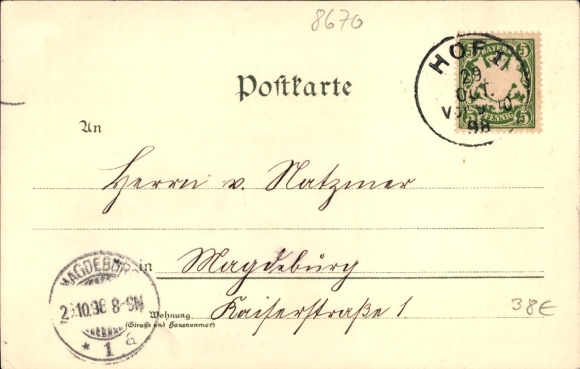 8670
BAYERN
5 5
PFENNIG
5 5
HOF I
29
OCT.
98
Postkarte
An
Herrn v. Natzmer
in Magdeburg
Wohnung Kaiserstraße 1
(Straße und Hausnummer)
MAGDEBURG
10.98 8-9N
* 1 a
38€